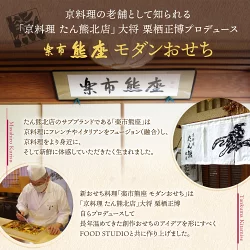 京料理の老舗として知られる
「京料理 たん熊北店」大将 栗栖正博プロデュース
楽市 熊座 モダンおせち
楽市 熊座
たん熊北店のサブブランドである「楽市熊座」は
京料理にフレンチやイタリアンをフュージョン(融合)し、
京料理をより身近に、
そして新鮮に体感していただきたく生まれました。
新おせち料理「楽市熊座 モダンおせち」は
「京料理 たん熊北店」大将 栗栖正博
自らプロデュースして
長年温めてきた創作おせちのアイデアを形にすべく
FOOD STUDIOと共に作り上げました。